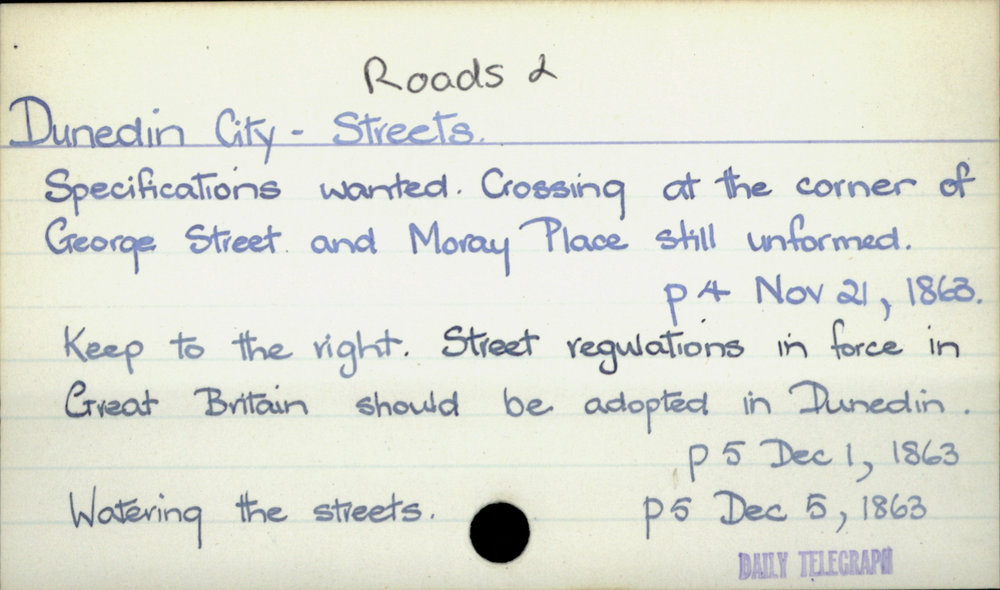 Roads 2
Dunedin City - Streets.
Specifications wanted. Crossing at the corner of
George Street and Moray Place still unformed.
p 4 Nov 21, 1863.
Keep to the right. Street regulations in force in
Great Britain should be adopted in Dunedin.
p 5 Dec 1, 1863
Watering the streets. p5 Dec 5, 1863
DAILY TELEGRAPH